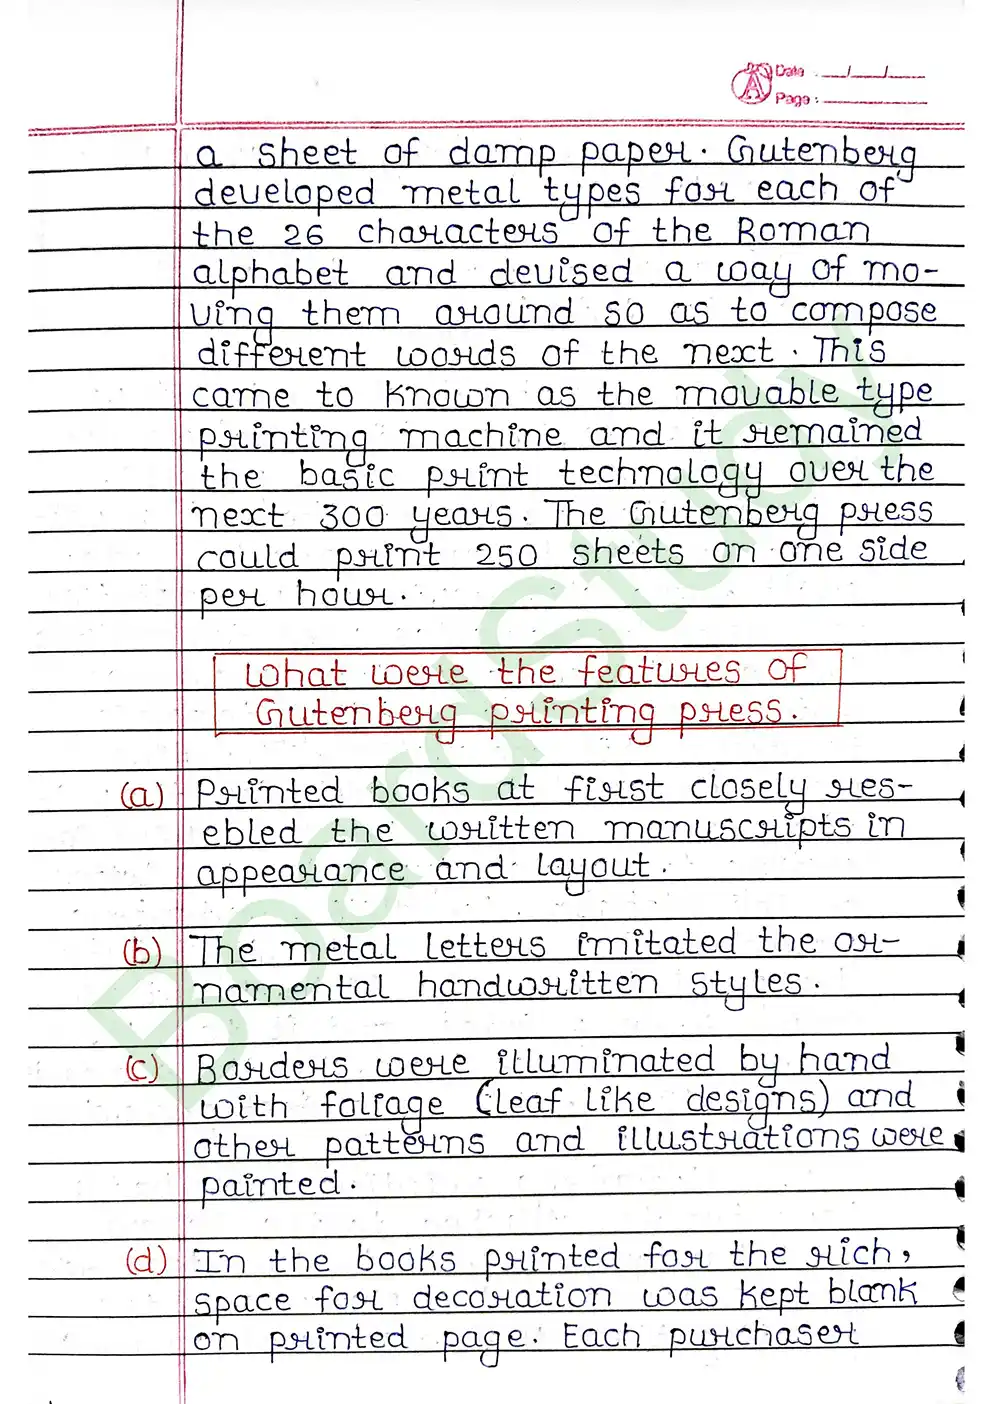 Date : __/__/__
Page : ________
a sheet of damp paper. Gutenberg
developed metal types for each of
the 26 characters of the Roman
alphabet and devised a way of mo-
ving them around so as to compose
different words of the next. This
came to known as the movable type
printing machine and it remained
the basic print technology over the
next 300 years. The Gutenberg press
could print 250 sheets on one side
per hour.
What were the features of
Gutenberg printing press.
(a) Printed books at first closely res-
ebled the written manuscripts in
appearance and layout.
(b) The metal letters imitated the or-
namental handwritten styles.
(c) Borders were illuminated by hand
with foliage (leaf like designs) and
other patterns and illustrations were
painted.
(d) In the books printed for the rich,
space for decoration was kept blank
on printed page. Each purchaser
Board Study